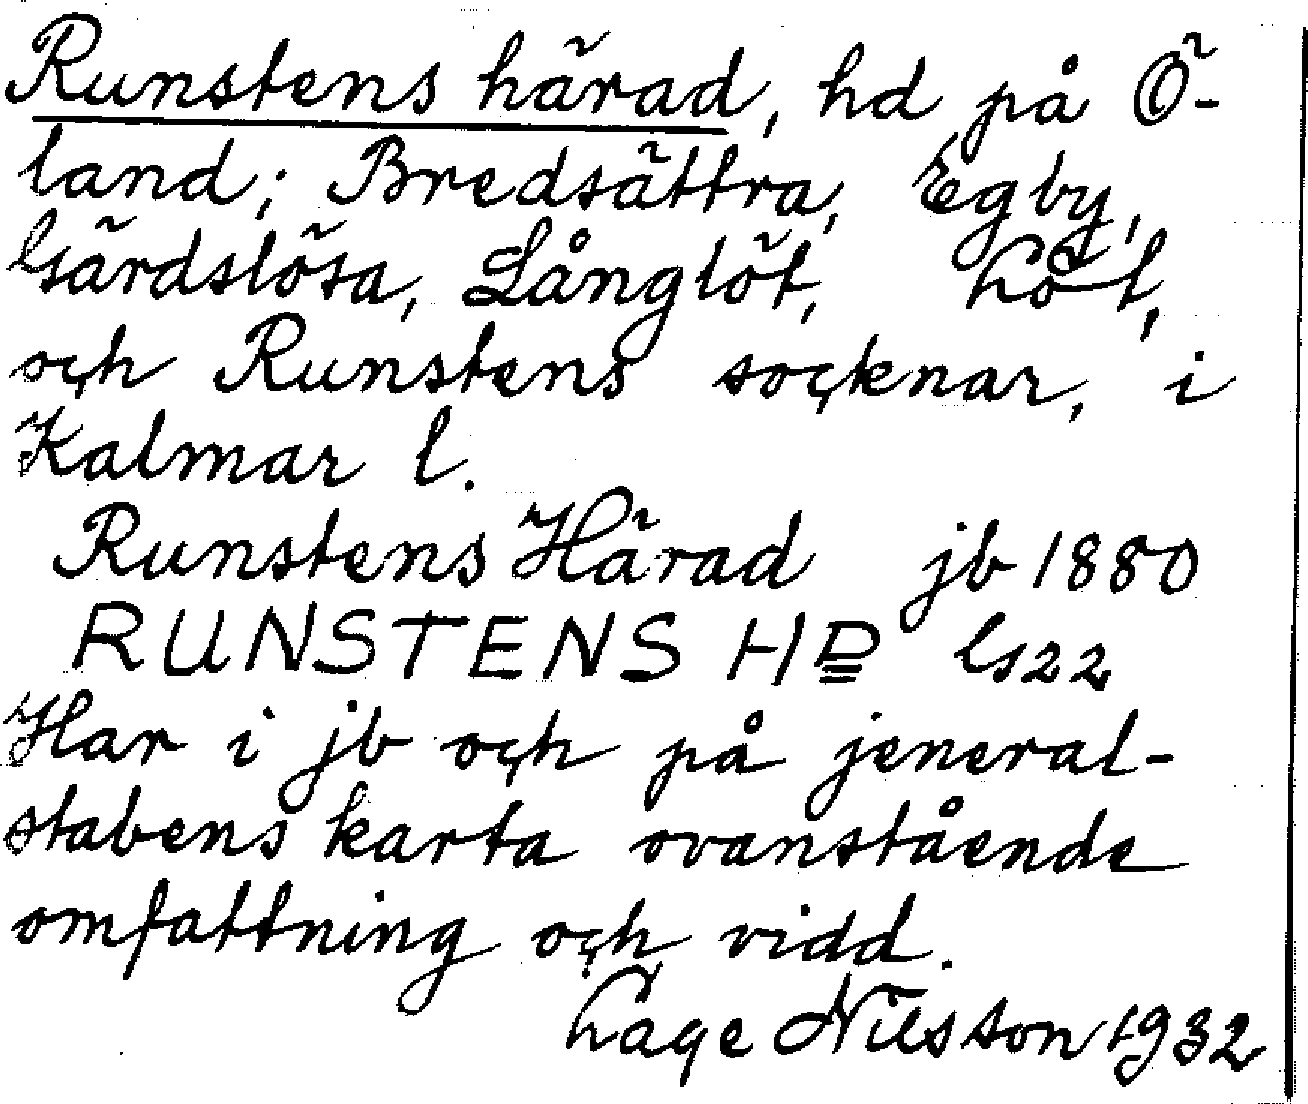 Runstens härad, hd på Ö-
land; Bredsättra, Egby,
Gärdslösa, Långlöt, Löt,
och Runstens socknar, i
Kalmar l.
Runstens Härad jb 1880
RUNSTENS HD Gs22
Har i jb och på jeneral-
stabens karta ovanstående
omfattning och vidd.
Lage Nilsson 1932